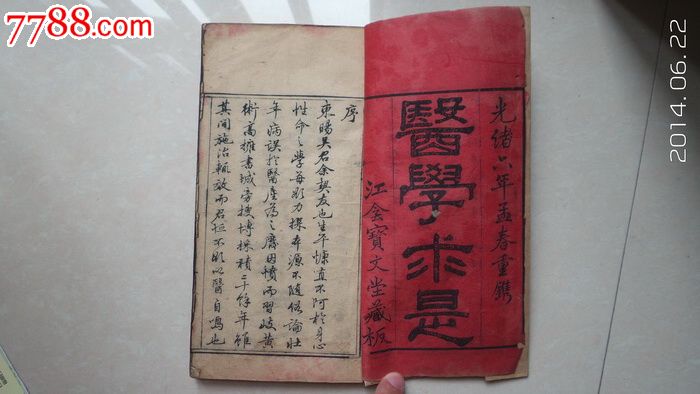 7788.com
2014.06.22
光緒六年孟春重鐫
醫學求是
江會寶文堂藏板
序
東暘吳君余契友也生平慷直不阿於身心
性命之學每影力探本源不隨俗論壯
年病誤於醫產為之癠因憤而習岐黃
術高擁書城旁搜博採積二十餘年雖
其間施治輒效而君恒不影以醫自鳴也